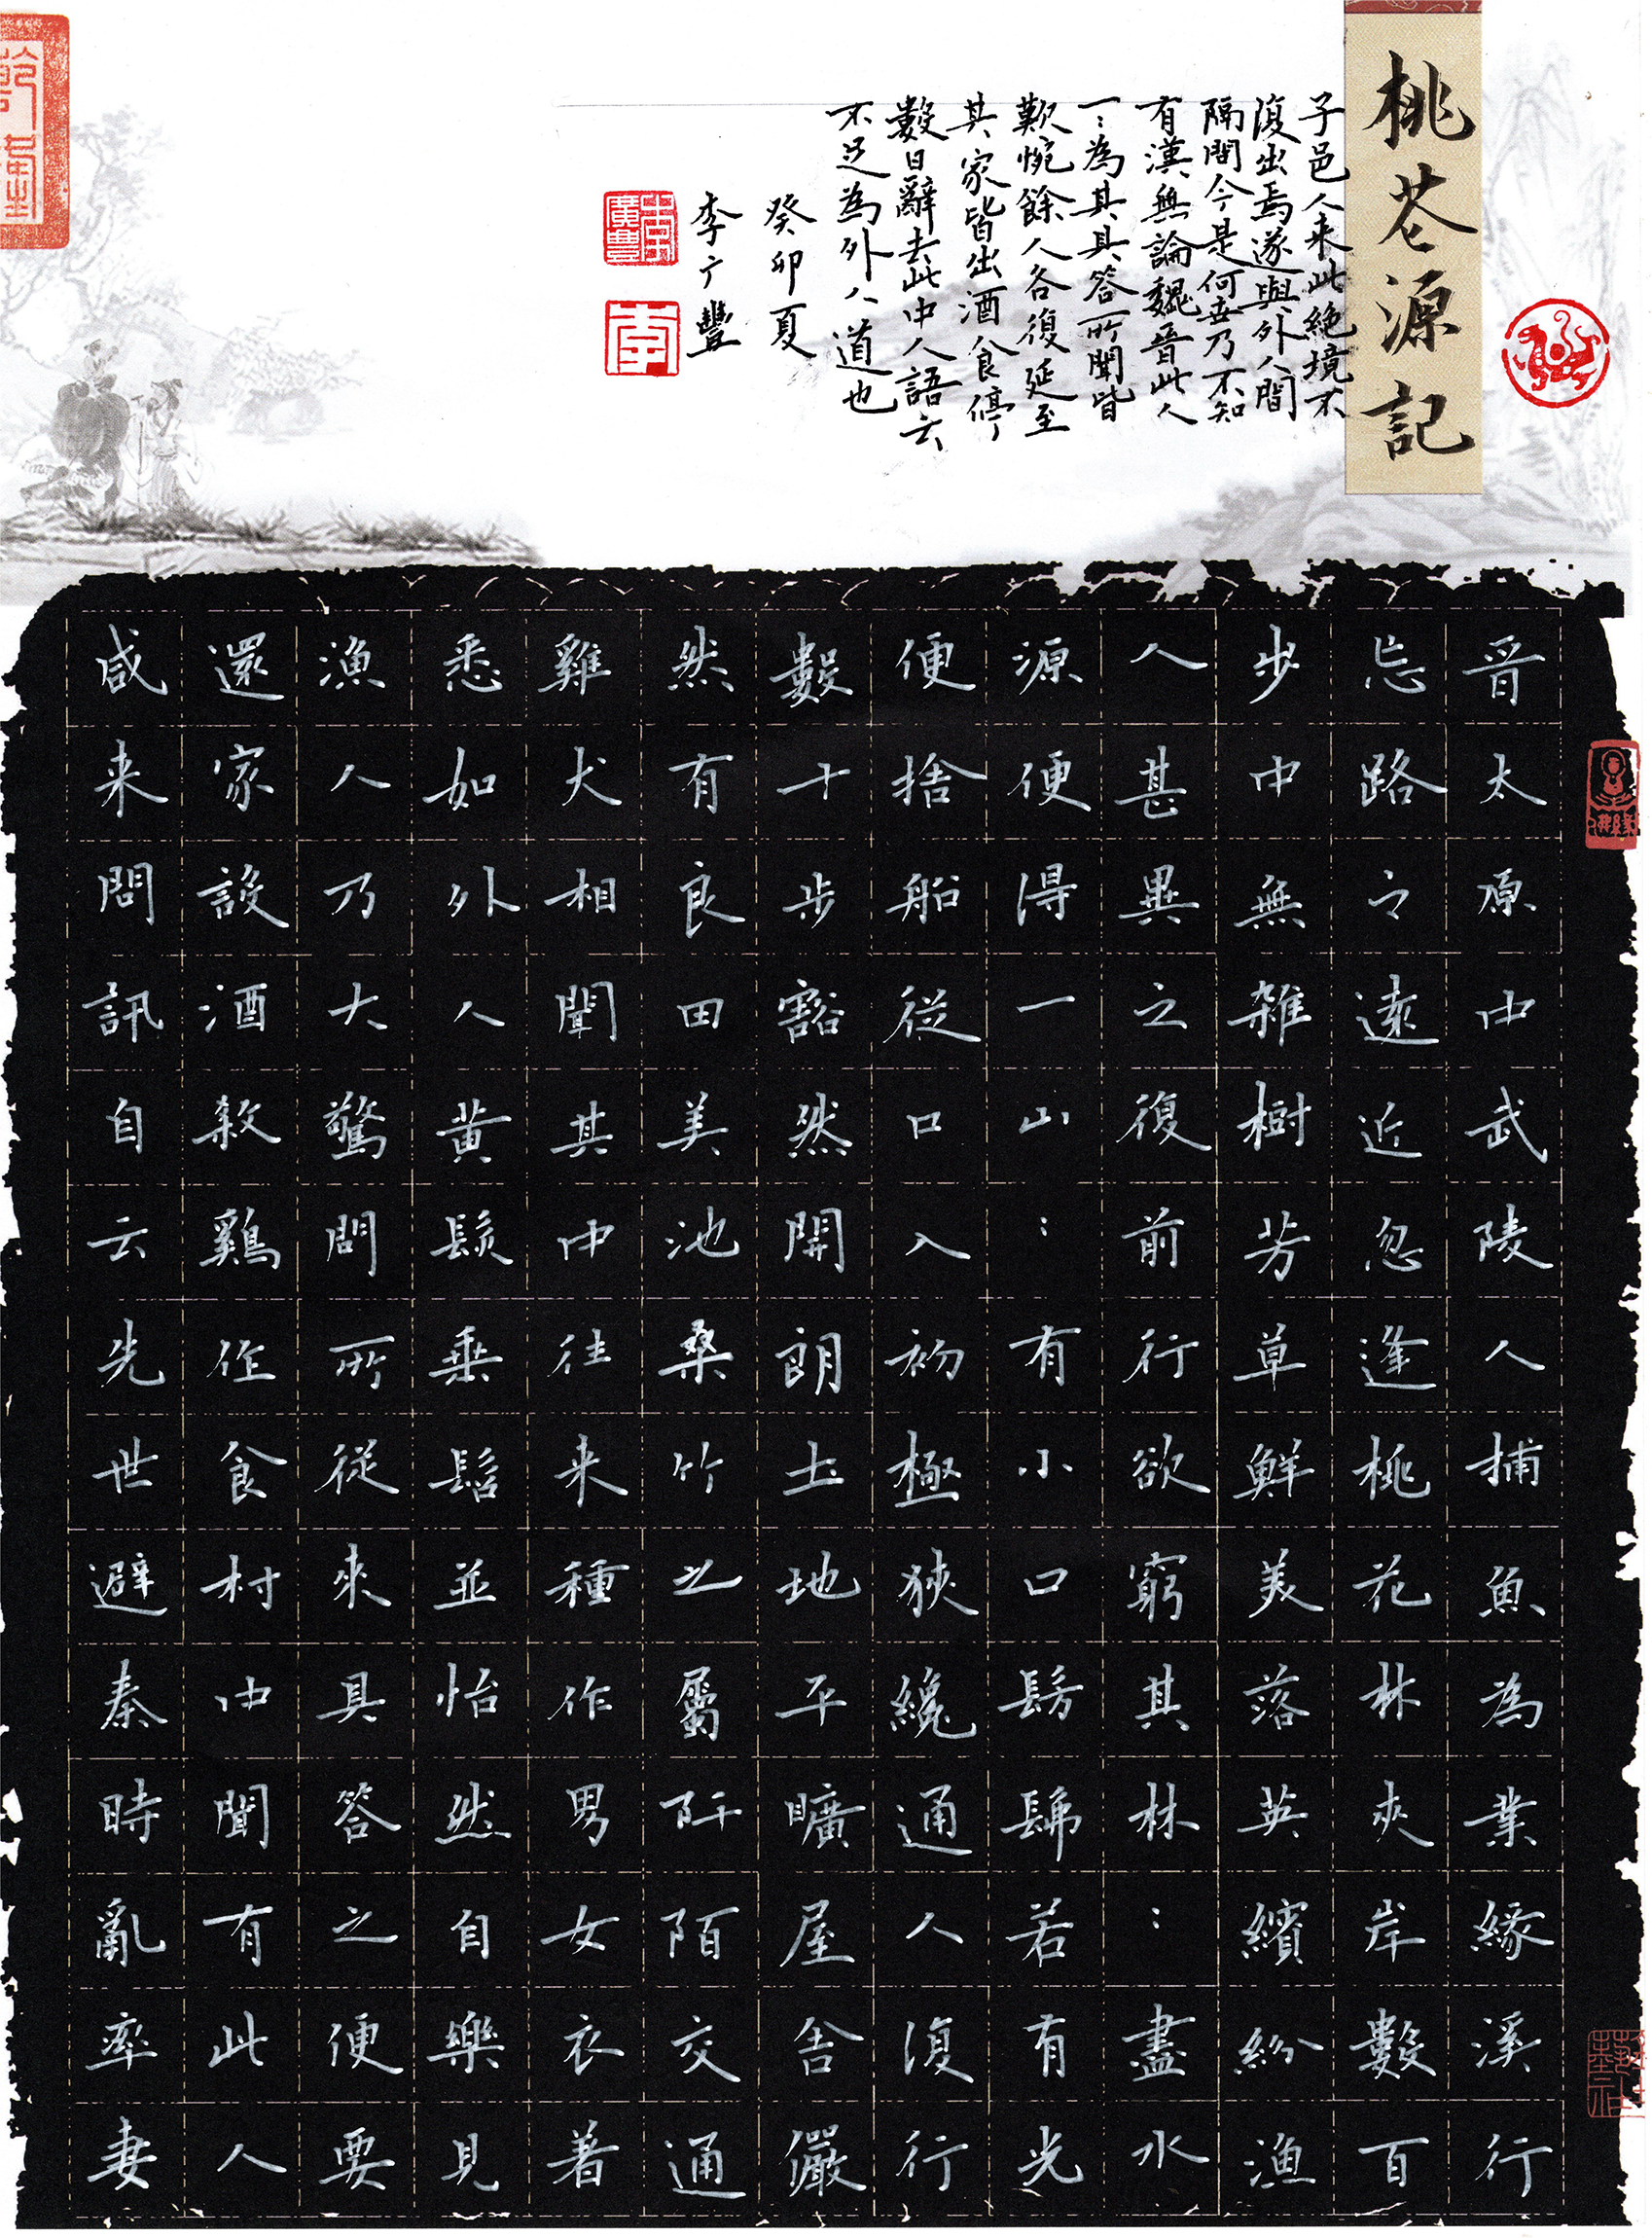 桃花源記
晉太原中武陵人捕魚為業緣溪行
忘路之遠近忽逢桃花林夾岸數百
步中無雜樹芳草鮮美落英繽紛漁
人甚異之復前行欲窮其林:盡水
源便得一山:有小口髣髴若有光
便捨船從口入初極狹纔通人復行
數十步豁然開朗土地平曠屋舍儼
然有良田美池桑竹之屬阡陌交通
雞犬相聞其中往来種作男女衣著
悉如外人黃髮垂髫並怡然自樂見
漁人乃大驚問所從來具答之便要
還家設酒殺鷄作食村中聞有此人
咸来問訊自云先世避秦時亂率妻
子邑人来此絕境不
復出焉遂與外人間
隔問今是何世乃不知
有漢無論魏晉此人
一:為其具答所聞皆
歎惋餘人各復延至
其家皆出酒食停
數日辭去此中人語云
不足為外人道也
癸卯夏
李广豐
李廣豐
李